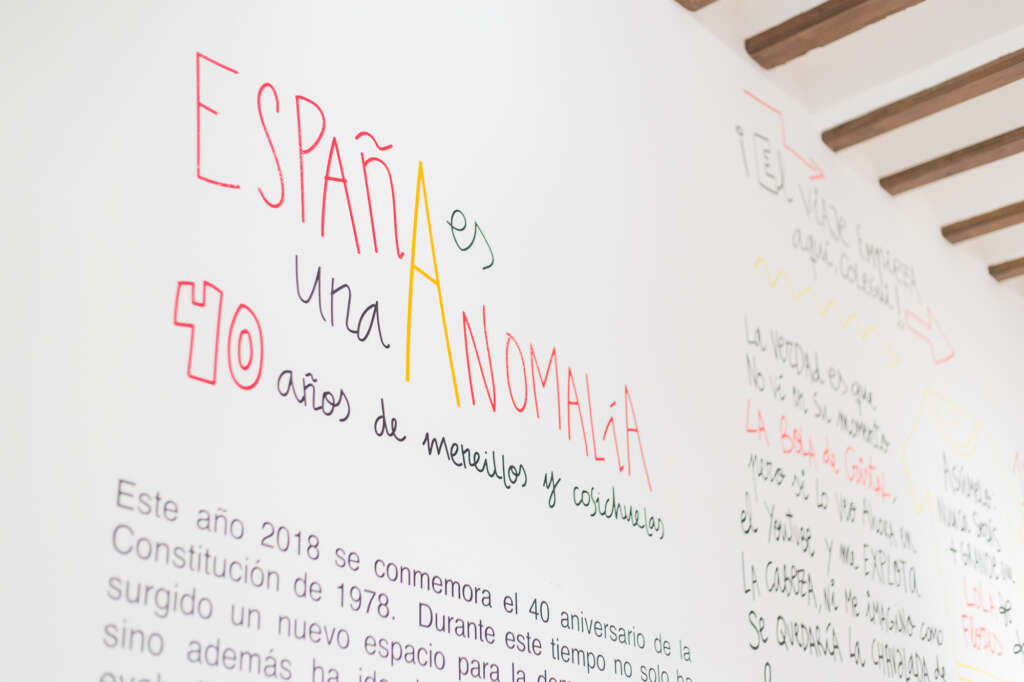 ESPAÑA es
una ANOMALÍA
40 años de mereillos y cosichuelas
Este año 2018 se conmemora el 40 aniversario de la
Constitución de 1978. Durante este tiempo no solo ha
surgido un nuevo espacio para la
sino además ha
¡El VIAJE EMPIEZA
aquí, colegui!
La VERDAD es que
No vi en su momento
LA BOLA de Cristal,
pero sí lo veo Ahora en
el Youtube y ma EXPLOTA
LA CABEZA, NI ME IMAGINO como
Se QUEDARÍA LA CHAVALADA de
Asúmelo
Nunca Serás
+ GRANDE
LOLA
FLORES